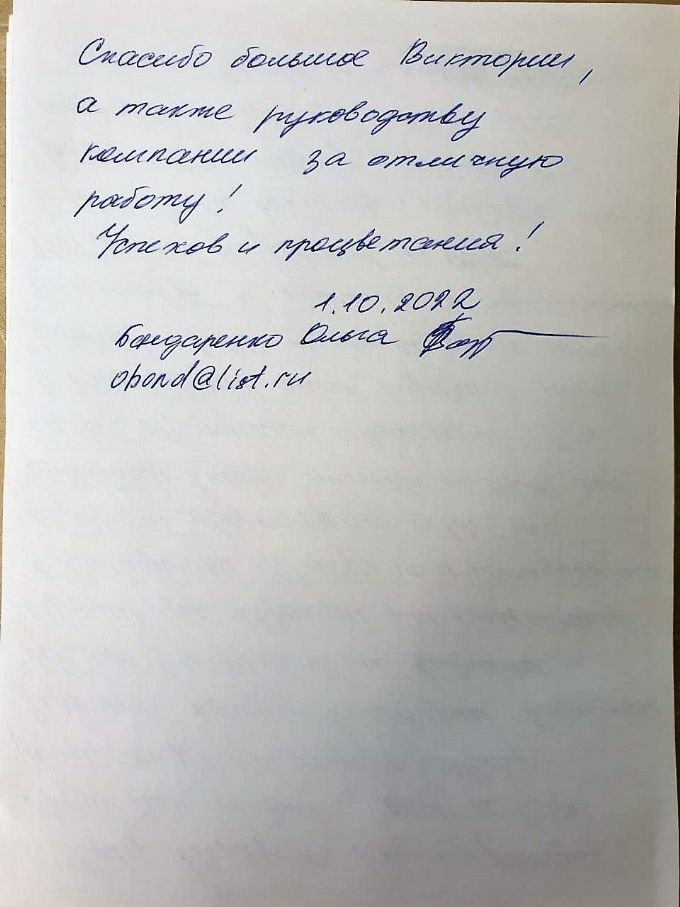 Спасибо большое Виктории,
а также руководству
компании за отличную
работу!
Успехов и процветания!
1.10.2022
Бондаренко Ольга
obond@list.ru